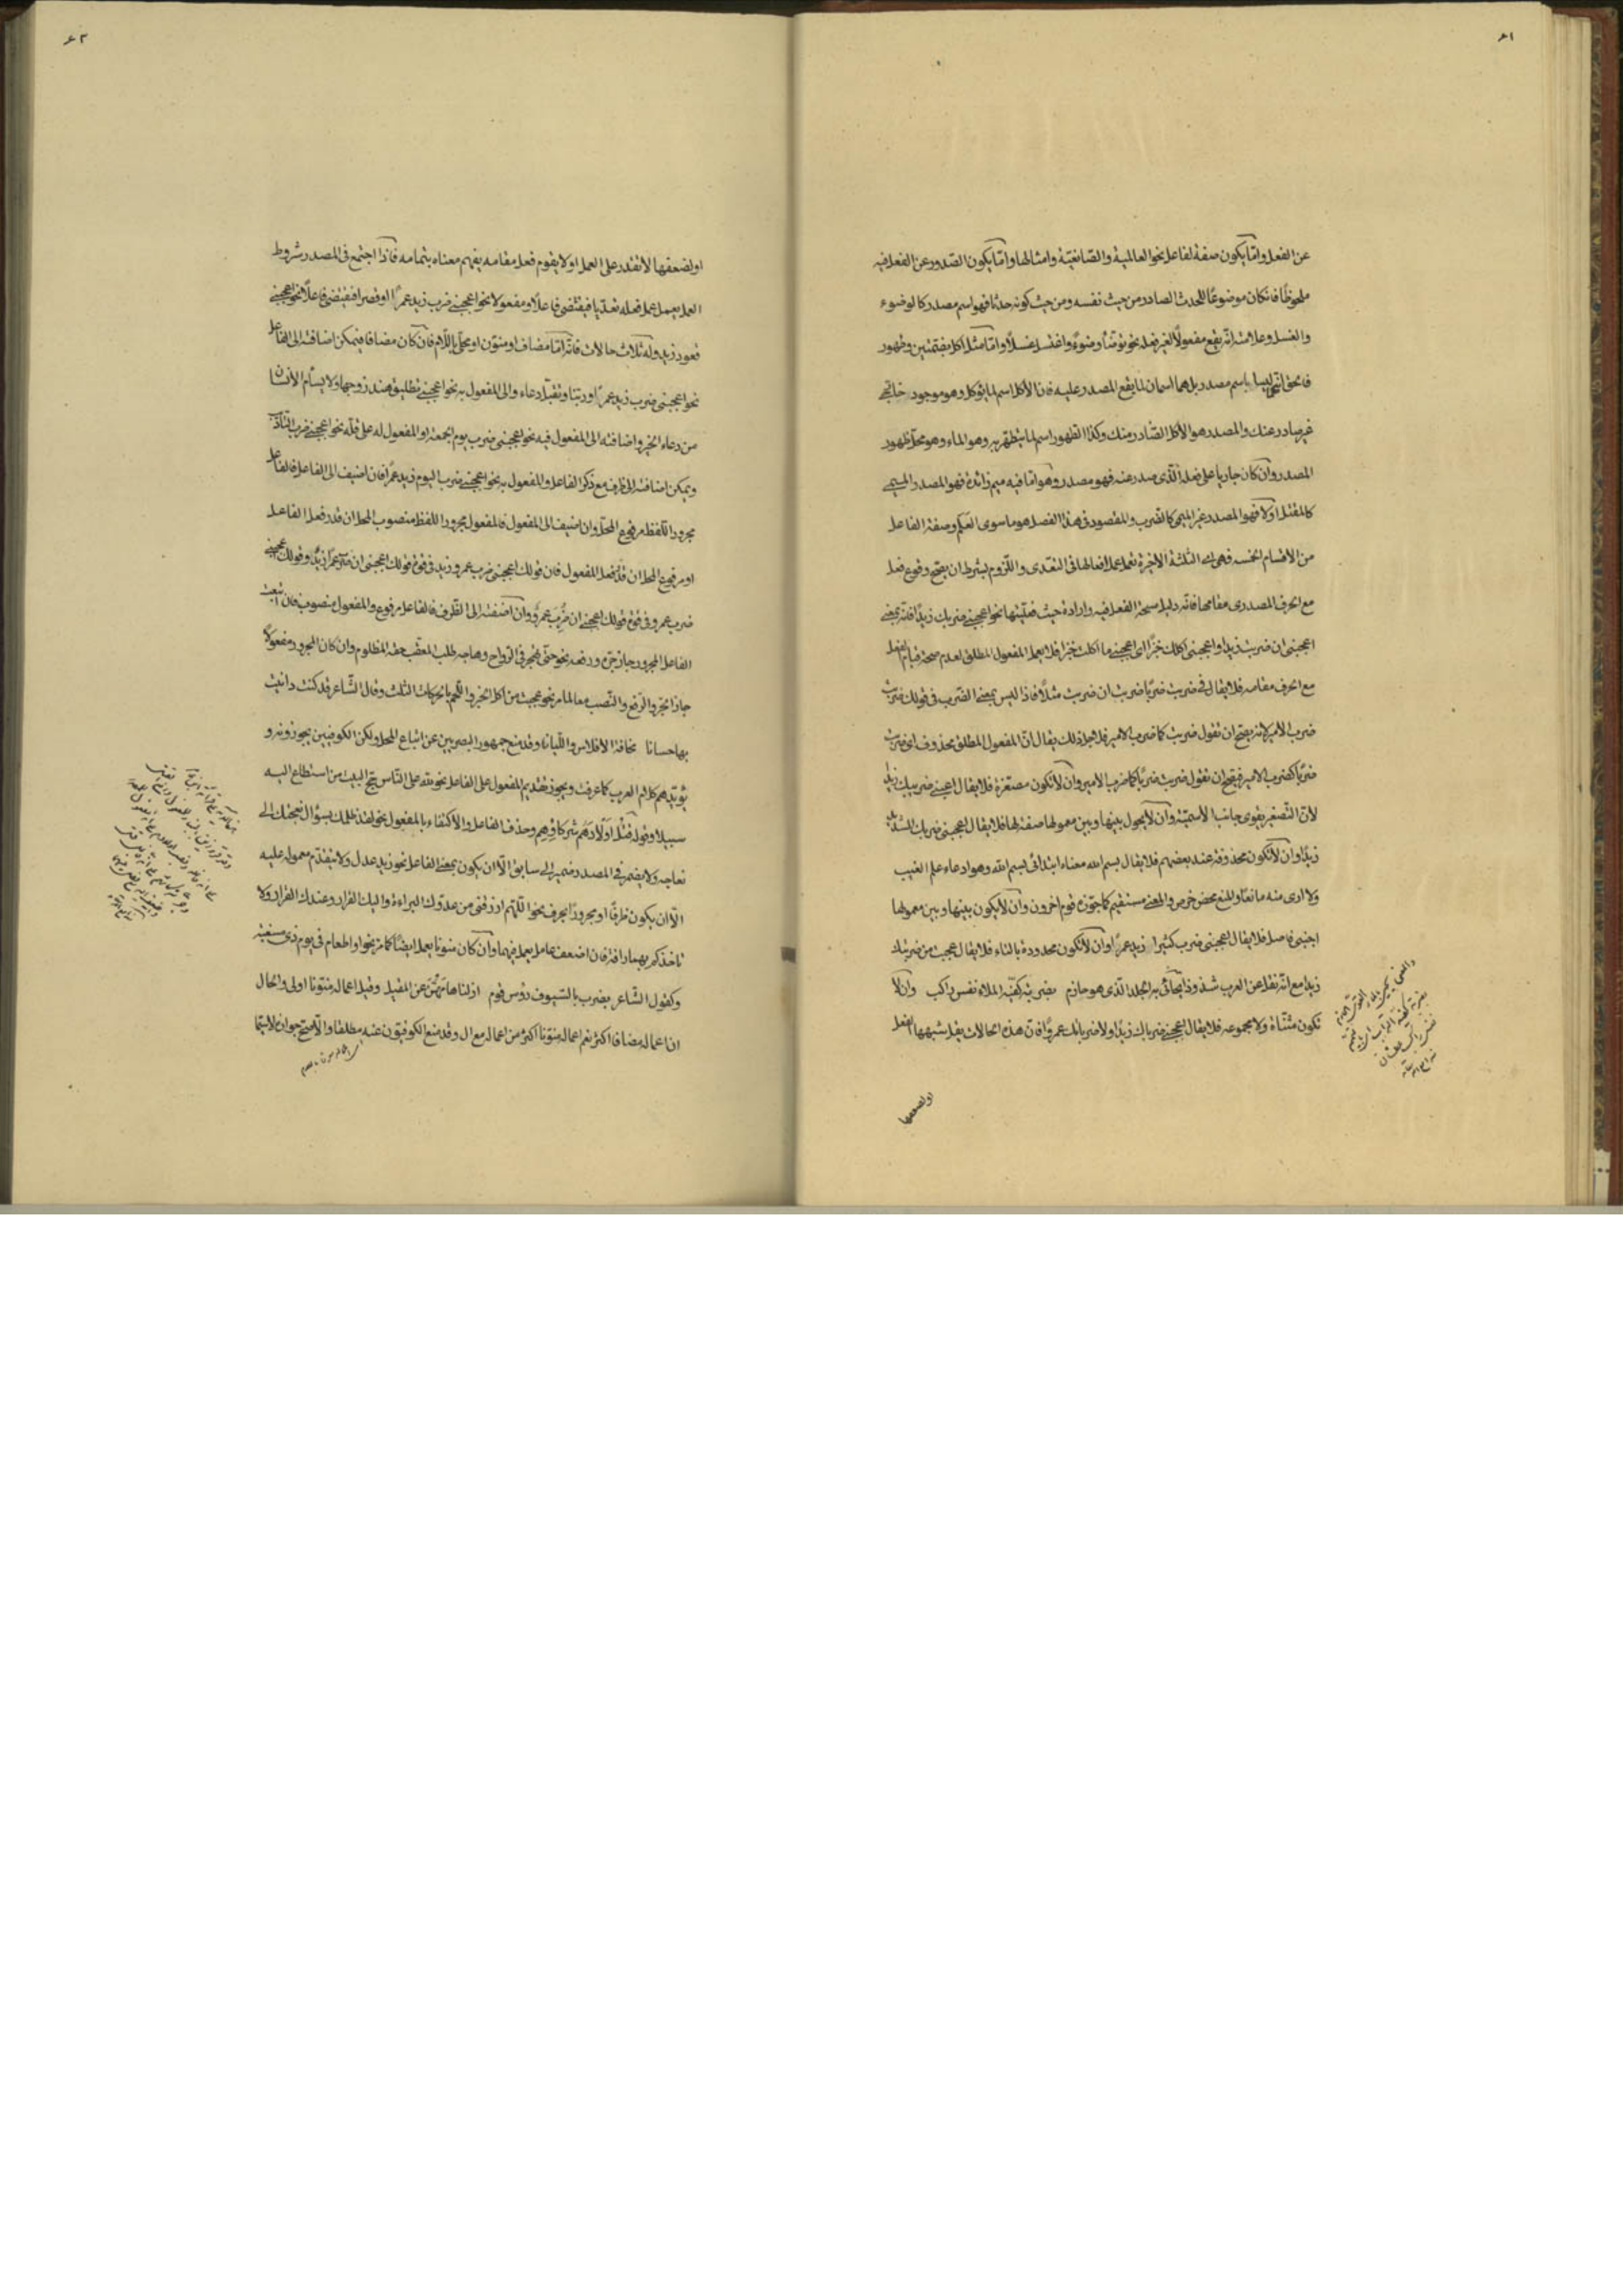 ٦١
عن الفعل وامّا يكون صفة لفاعل نحو العالمية والضاربيّة وامثالها وامّا يكون الصّدور عن الفعل فيه
ملحوظًا فان كان موضوعًا للحدث الصادر من حيث نفسه ومن حيث كونه حدثا فهو اسم مصدر كالوضوء
والغسل وعلامته انّه يقع مفعولًا لغير فعله نحو توضّأ وضوءً واغتسل غسلًا وامّا مثل اكل بضمّتين وطهور
فالحق انّهما ليسا باسم مصدر بل هما اسمان لما يقع المصدر عليه فان الأكل اسم لما يؤكل وهو موجود خارجي
غير صادر عنك والمصدر هو الأكل الصّادر منك وكذا الطّهور اسم لما يتطهّر به وهو الماء وهو محلّ ظهور
المصدر وان كان جاريا على فعله الّذى صدر عنه فهو مصدر وهو امّا فيه ميم زائدة فهو المصدر الميمى
كالمقتل اولا فهو المصدر غير الميمى كالضرب والمقصود فى هذا الفصل هو ما سوى العَلَم وصفة الفاعل
من الاقسام الخمسة فهى اى الثلثة الأخيرة تعمل عمل افعالها فى التعّدى واللّزوم بشرط ان يصحّ وقوع فعل
مع الحرف المصدرى مقامها فانّه دليل سحة الفعل فيه وارادة حيث فعليّتها نحو اعجبنى ضربك زيدًا فانّه بمعنى
اعجبنى ان ضربت زيدا واعجبنى اكلك خبزًا اى اعجبنى ما اكلت خبزا فلا يعمل المفعول المطلق لعدم صحة قيام الفعل
مع الحرف مقامه فلا يقال فى ضربت ضربًا ضربت ان ضربت مثلًا فاذا ليس بمعنى الضّرب فى قولك ضربت
ضرب الامير لانه يصحّ ان تقول ضربت كما ضرب الامير فلاجل ذلك يقال انّ المفعول المطلق محذوف اى ضربت
ضربًا كضرب الامير فيصحّ ان تقول ضربت ضربًا كما ضرب الامير وان لا تكون مصغّرة فلا يقال اعجبنى ضريبك زيدا
لأنّ التّصغير يقوى جانب الأسميّة وان لا يحول بينها وبين معمولها صفة لها فلا يقال اعجبنى ضربك الشديد
زيدًا وان لا تكون محذوفة عند بعضهم فلا يقال بسم الله معناه ابتدائى بسم الله وهو ادعاء علم الغيب
ولا ارى منه مانعًا والمنع محض خرص والمعنى مستقيم كما جوّزه قوم اخرون وان لا يكون بينها وبين معمولها
اجنبى فاصل فلا يقال اعجبنى ضرب كثيرا زيد عمرًا وان لا تكون محدودة بالتاء فلا يقال عجبت من ضربتك
زيدا مع انّه نقل عن العرب شذوذا يحائى به الجلد الّذى هو حازم بضربة كفّيه الملا نفس راكب وان لا
تكون مثنّاة ولا مجموعة فلا يقال اعجبنى ضرباك زيدًا ولا ضرباتك عمروًا فانّ هذه الحالات يقلّ شبهها بالفعل
اولضعفها
٦٢
اولضعفها لا تقدر على العمل او لا يقوم فعل مقامه يفهم معناه بتمامه فاذا اجتمع فى المصدر شروط
العمل يعمل عمل فعله تعديا فيقتضى فاعلًا ومفعولا نحو اعجبنى ضرب زيد عمرًا او قصرا فيقتضى فاعلًا نحو اعجبنى
قعود زيد وله ثلاث حالات فانّه امّا مضاف او منوّن او محلّى باللّام فان كان مضافا فيمكن اضافته الى الفاعل
نحو اعجبنى ضرب زيد عمرًا وربّنا وتقبّل دعاء والى المفعول به نحو اعجبنى تطليق هند زوجها ولا يسأم الأنسان
من دعاء الخير واضافته الى المفعول فيه نحو اعجبنى ضرب يوم الجمعة او المفعول له على قلّه نحو اعجبنى ضرب التأديب
ويمكن اضافته الى ظرف مع ذكر الفاعل والمفعول به نحو اعجبنى ضرب اليوم زيد عمرًا فان اضيف الى الفاعل فالفاعل
مجرور اللفظ مرفوع المحلّ وان اضيف الى المفعول فالمفعول مجرور اللفظ منصوب المحل ان قدر فعل الفاعل
او مرفوع المحل ان قدّر فعل المفعول فان قولك اعجبنى ضرب عمرو زيد فى قوّة قولك اعجبنى ان ضرب عمرًا زيدٌ وقولك اعجبنى
ضرب عمرو فى قوّة قولك اعجبنى ان ضُرِبَ عمروٌ وان اضفته الى الظّرف فالفاعل مرفوع والمفعول منصوب فان اتبعت
الفاعل المجرور جاز جرّه ورفعه نحو حتى تهجّر فى الرّواح وهاجه طلب المعقّب حقّه المظلوم وان كان المجرور مفعولًا
جاز الجر والرّفع والنّصب معا لما مرّ نحو عجبت من اكل الخبز واللّحم بالحركات الثلث وقال الشّاعر قد كنت داينت
بها حسانا مخافة الافلاس واللّيانا وقد منع جمهور البصريين عن اتباع المحل ولكن الكوفيين يجوزونه و
يؤيّدهم كلام العرب كما عرفت ويجوز تقديم المفعول على الفاعل نحو لله على النّاس حجّ البيت من استطاع اليه
سبيلا وقوله قتلُ اولادَهم شركاؤهم وحذف الفاعل والأكتفاء بالمفعول نحو لقد ظلمك بسؤال نعجتك الى
نعاجه ولا يضمر فى المصدر ضمير الى سابق الّا ان يكون بمعنى الفاعل نحو زيد عدل ولا يتقدّم معموله عليه
الّا ان يكون ظرفًا او مجرورًا بحرف نحو اللّهمّ ارزقنى من عدوّك البراءة واليك الفرار وعندك القرار ولا
تاخذكم بهما رافة فان اضعف عامل يعمل فيهما وان كان منونا يعمل ايضًا كما مرّ نحو او اطعام فى يوم ذى مسغبة
وكقول الشّاعر بضرب بالسّيوف رؤس قوم ازلنا هامهنّ عن المقيل وقيل اعماله منوّنا اولى والحال
انّ اعماله مضافا اكثر نعم اعماله منوّنا اكثر من اعماله مع ال وقد منع الكوفيّون عنه مطلقا والأصحّ جوازه لاسيّما